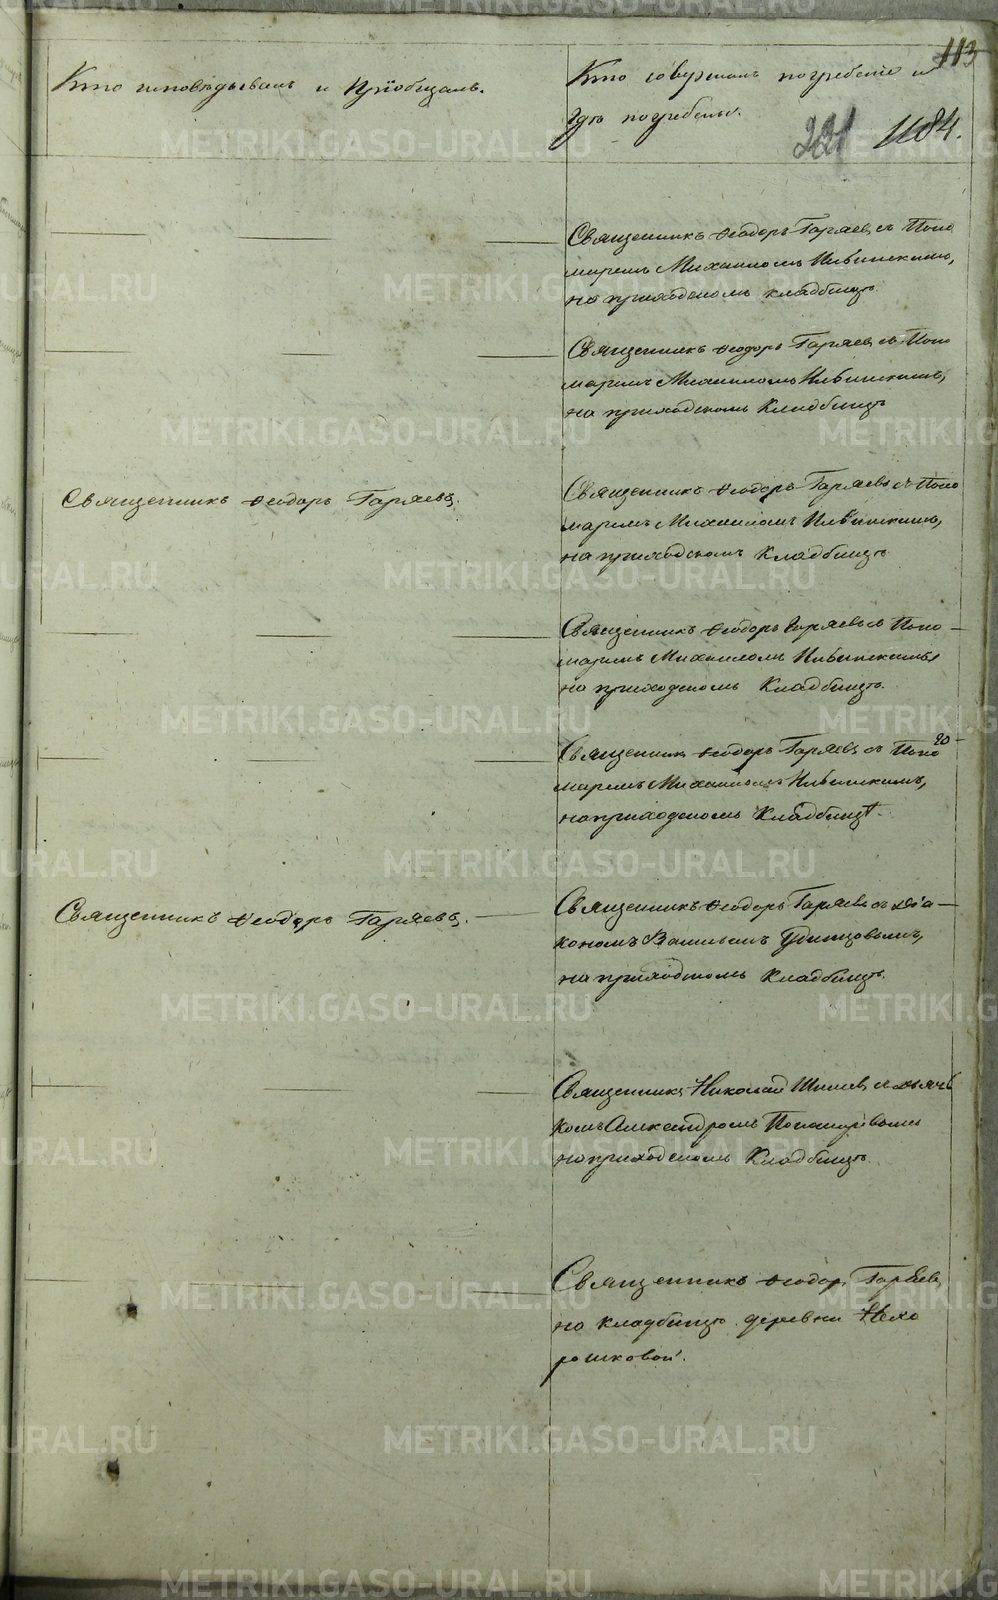 113
Кто исповѣдывалъ и Пріобщалъ.
Кто совершалъ погребеніе и
гдѣ погребены.
221 1184.
Священникъ Ѳеодоръ Гаряевъ съ Поно
маремъ Михаиломъ Ильинскимъ,
на приходскомъ кладбищѣ.
Священникъ Ѳеодоръ Гаряевъ съ Поно
маремъ Михаиломъ Ильинскимъ,
на приходскомъ Кладбищѣ
Священникъ Ѳеодоръ Гаряевъ.
Священникъ Ѳеодоръ Гаряевъ съ Поно
маремъ Михаиломъ Ильинскимъ,
на приходскомъ Кладбищѣ
Священникъ Ѳеодоръ Гаряевъ съ Поно-
маремъ Михаиломъ Ильинскимъ
на приходскомъ Кладбищѣ.
Священникъ Ѳеодоръ Гаряевъ съ Поно
маремъ Михаиломъ Ильинскимъ,
на приходскомъ Кладбищѣ.
Священникъ Ѳеодоръ Гаряевъ.
Священникъ Ѳеодоръ Гаряевъ съ діа-
кономъ Василіемъ Удинцовымъ,
на приходскомъ Кладбищѣ.
Священникъ Николай Шишевъ съ дьяч
комъ Александромъ Пономаревымъ
на приходскомъ Кладбищѣ.
Священникъ Ѳеодоръ Гаряевъ
на кладбищѣ деревни Нехо
рошковой.
METRIKI.GASO-URAL.RU